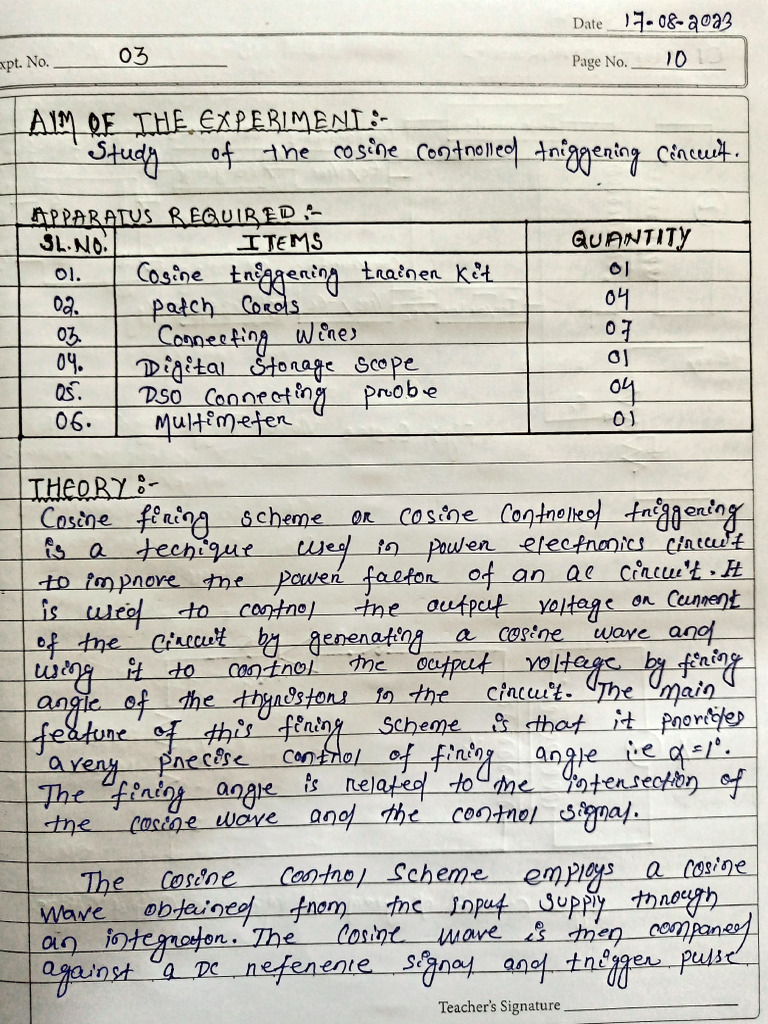 Date 17-08-2023
xpt. No. 03
Page No. 10
AIM OF THE EXPERIMENT:-
Study of the cosine controlled triggering circuit.
APPARATUS REQUIRED:-
SL.NO. ITEMS QUANTITY
01. Cosine triggering trainer kit 01
02. Patch Cords 04
03. Connecting Wires 07
04. Digital Storage Scope 01
05. DSO Connecting probe 04
06. Multimeter 01
THEORY:-
Cosine firing scheme or cosine controlled triggering
is a technique used in power electronics circuit
to improve the power factor of an ac circuit. It
is used to control the output voltage or current
of the circuit by generating a cosine wave and
using it to control the output voltage by firing
angle of the thyristors in the circuit. The main
feature of this firing scheme is that it provides
a very precise control of firing angle i.e α=1°.
The firing angle is related to the intersection of
the cosine wave and the control signal.
The cosine control scheme employs a cosine
wave obtained from the input supply through
an integrator. The cosine wave is then compared
against a DC reference signal and trigger pulse
Teacher's Signature